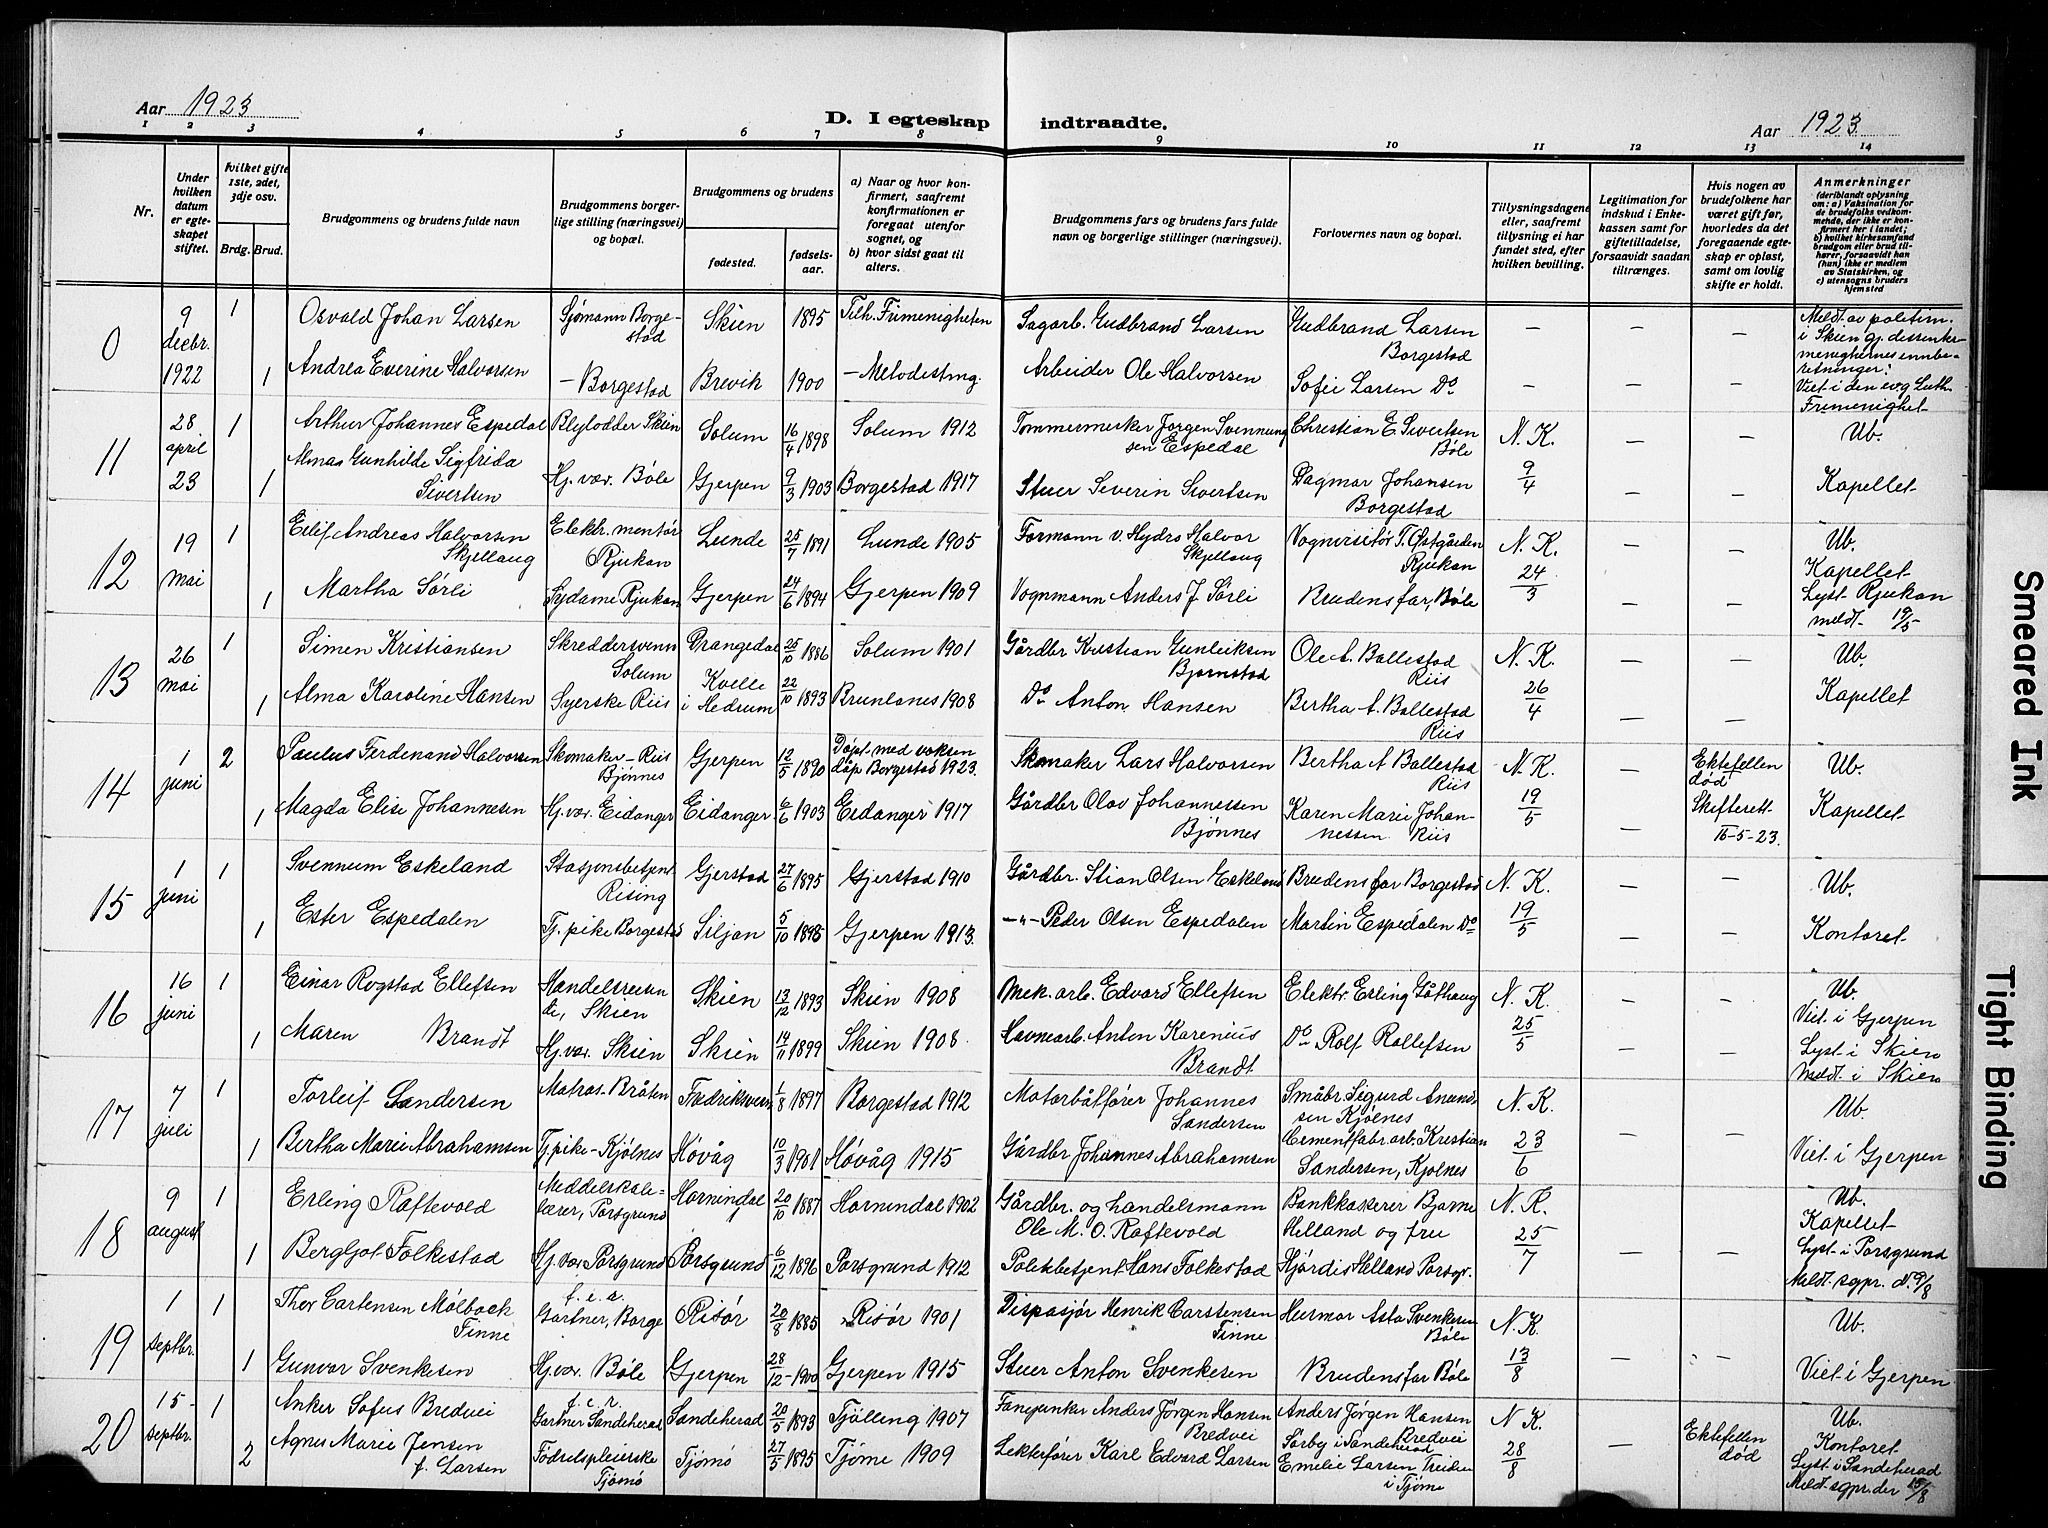 Aar 1923
D. I egteskap indtraadte.
Aar 1923
1 2 3 4 5 6 7 8 9 10 11 12 13 14
Nr.
Under hvilken datum er egteskapet stiftet.
Hvilket gifte 1ste, 2det, 3dje osv.
Brdg. Brud.
Brudgommens og brudens fulde navn
Brudgommens borgerlige stilling (næringsvei) og bopæl.
Brudgommens og brudens
fødested. fødselsaar.
a) Naar og hvor konfirmert, saafremt konfirmationen er foregaat utenfor sognet, og
b) hvor sidst gaat til alters.
Brudgommens fars og brudens fars fulde navn og borgerlige stillinger (næringsvei).
Forlovernes navn og bopæl.
Tillysningsdagene eller, saafremt tillysning ei har fundet sted, efter hvilken bevilling.
Legitimation for indskud i Enkekassen samt for giftetilladelse, forsaavidt saadan tiltrænges.
Hvis nogen av brudefolkene har været gift før, hvorledes da det foregaaende egteskap er opløst, samt om lovlig skifte er holdt.
Anmerkninger
(deriblandt oplysning om: a) Vaksination for de brudefolks vedkommende, der ikke er konfirmert her i landet; b) hvilket kirkesamfund brudgom eller brud tilhører, forsaavidt han (hun) ikke er medlem av Statskirken, og c) utensogns bruders hjemsted
0 9 decbr. 1922 1 Osvald Johan Larsen Sjømann Borgestad Skien 1895 Tilh. Frimenigheten Sagarb. Gudbrand Larsen Gudbrand Larsen Borgestad – – –
1 Andrea Everine Halvorsen – Borgestad Brevik 1900 – Arbeider Ole Halvorsen Sofie Larsen Do – – –
Meldt av politim. i Skien gj. Viet i den evg Luth. Frimenighet
11 28 april 23 1 Arthur Johannes Espedal Blylodder Skien Solum 16/4 1898 Solum 1912 Tømmermerker Jørgen Svennungsen Espedal Christian E. Sivertsen Bøle N. K. – – Ub.
1 Almaa Gunhilde Sigfrida Sivertsen Hj. vær. Bøle Gjerpen 9/3 1903 Borgestad 1917 Stuer Severin Sivertsen Dagmar Johansen Borgestad 9/4 – – Kapellet
12 19 mai 1 Eilif Andreas Halvorsen Skjellaug Elektr. montør Rjukan Lunde 25/7 1891 Lunde 1905 Formann v. Hydro Halvor Skjellaug Vognvisitør T. Østgården Rjukan N. K. – – Ub.
1 Martha Sørli Sydame Rjukan Gjerpen 24/6 1894 Gjerpen 1909 Vognmann Anders J. Sørli Brudens far, Bøle 24/3 – – Kapellet Lyst Rjukan meldt 19/5
13 26 mai 1 Simen Kristiansen Skreddersvenn Solum Drangedal 25/10 1886 Solum 1901 Gårdbr Kristian Gunleiksen Bjørnstad Ole A. Ballestad Riis N. K. – – Ub.
1 Alma Karoline Hansen Syerske Riis Kvelle i Hedrum 22/10 1893 Brunlanes 1908 Do Anton Hansen Bertha A. Ballestad Riis 26/4 – – Kapellet
14 1 juni 2 Paulus Ferdinand Halvorsen Skomaker – Riis Bjønnes Gjerpen 12/5 1890 Døpt med voksen dåp Borgestad 1923. Skomaker Lars Halvorsen Bertha A Ballestad Riis N. K. – Ektefellen død Ub.
1 Magda Elise Johannesen Hj. vær. Eidanger Eidanger 6/6 1903 Eidanger 1917 Gårdbr Olav Johannessen Bjønnes Karen Marie Johannessen Riis 19/5 – Skifterett 15-5-23. Kapellet
15 1 juni 1 Svennum Eskeland Stasjonsbetjent Rising Gjerstad 27/6 1895 Gjerstad 1910 Gårdbr. Stian Olsen Eskeland Brudens far Borgestad N. K. – – Ub.
1 Ester Espedalen Tj. pike Borgestad Siljan 5/10 1898 Gjerpen 1913. –"– Peder Olsen Espedalen Martin Espedalen Do 19/5 – – Kontoret
16 16 juni 1 Einar Rogstad Ellefsen Handelsreisende, Skien Skien 13/12 1893 Skien 1908 Mek. arb. Edvard Ellefsen Elektr. Erling Gåthaug N. K. – – Ub.
1 Maren Brandt Hj. vær. Skien Skien 14/11 1899 Skien 1908. Havnearb. Anton Karenius Brandt Do Rolf Rollefsen 25/5 – – Viet i Gjerpen Lyst i Skien Meldt i Skien
17 7 juli 1 Torleif Sandersen Matros – Bråten Fredriksvern 1/8 1897 Borgestad 1912 Motorbåtfører Johannes Sandersen Småbr. Sigurd Anundsen Kjølnes N. K. – – Ub.
1 Bertha Marie Abrahamsen Tj. pike – Kjølnes Høvåg 10/3 1901 Høvåg 1915 Gårdbr Johannes Abrahamsen Cementfabr. arb. Kristian Sandersen, Kjølnes 23/6 Viet i Gjerpen
18 9 august 1 Erling Raftevold Meddelskolelærer, Porsgrund Hornindal 20/10 1887 Hornindal 1902 Gårdbr. og handelsmann Ole M. O. Raftevold Bankkaserer Bjarne Helland og fru N. K. Ub.
1 Bergljot Folkestad Hj. vær Porsgrund Porsgrund 6/12 1896 Porsgrund 1912 Politibetjent Hans Folkestad Hjørdis Helland Porsgr. 25/7 – – Kapellet Lyst i Porsgrund Meldt sgpr. d. 9/8
19 1 septbr. 1 Thor Cartensen Mølback Finne Gartner, Borge Risør 20/8 1885 Risør 1901 Dispasjør Henrik Carstensen Finne Herman Asta Svenkesen Bøle N. K. Ub.
1 Gunvor Svenkesen Hj. vær. Bøle Gjerpen 28/12 – 1900 Gjerpen 1915 Stuer Anton Svenkesen Brudens far Bøle 13/8 – – Viet i Gjerpen
20 15 septbr. 1 Anker Sofus Bredvei Gartner Sandeherad Sandeherad 20/5 1893 Tjølling 1907 Fanejunker Anders Jørgen Hansen Bredvei Anders Jørgen Hansen Bredvei Sørby i Sandeherad N. K. Ub.
2 Agnes Marie Jensen f. Larsen Fødselspleierske Tjømø Tjømø 27/5 1895 Tjøme 1909 Lekterfører Karl Edvard Larsen Emelie Larsen Treiden i Tjøme 28/8 – Ektefellen død Kontoret Lyst i Sandeherad Meldt sgpr. der 15/8
Smeared Ink
Tight Binding